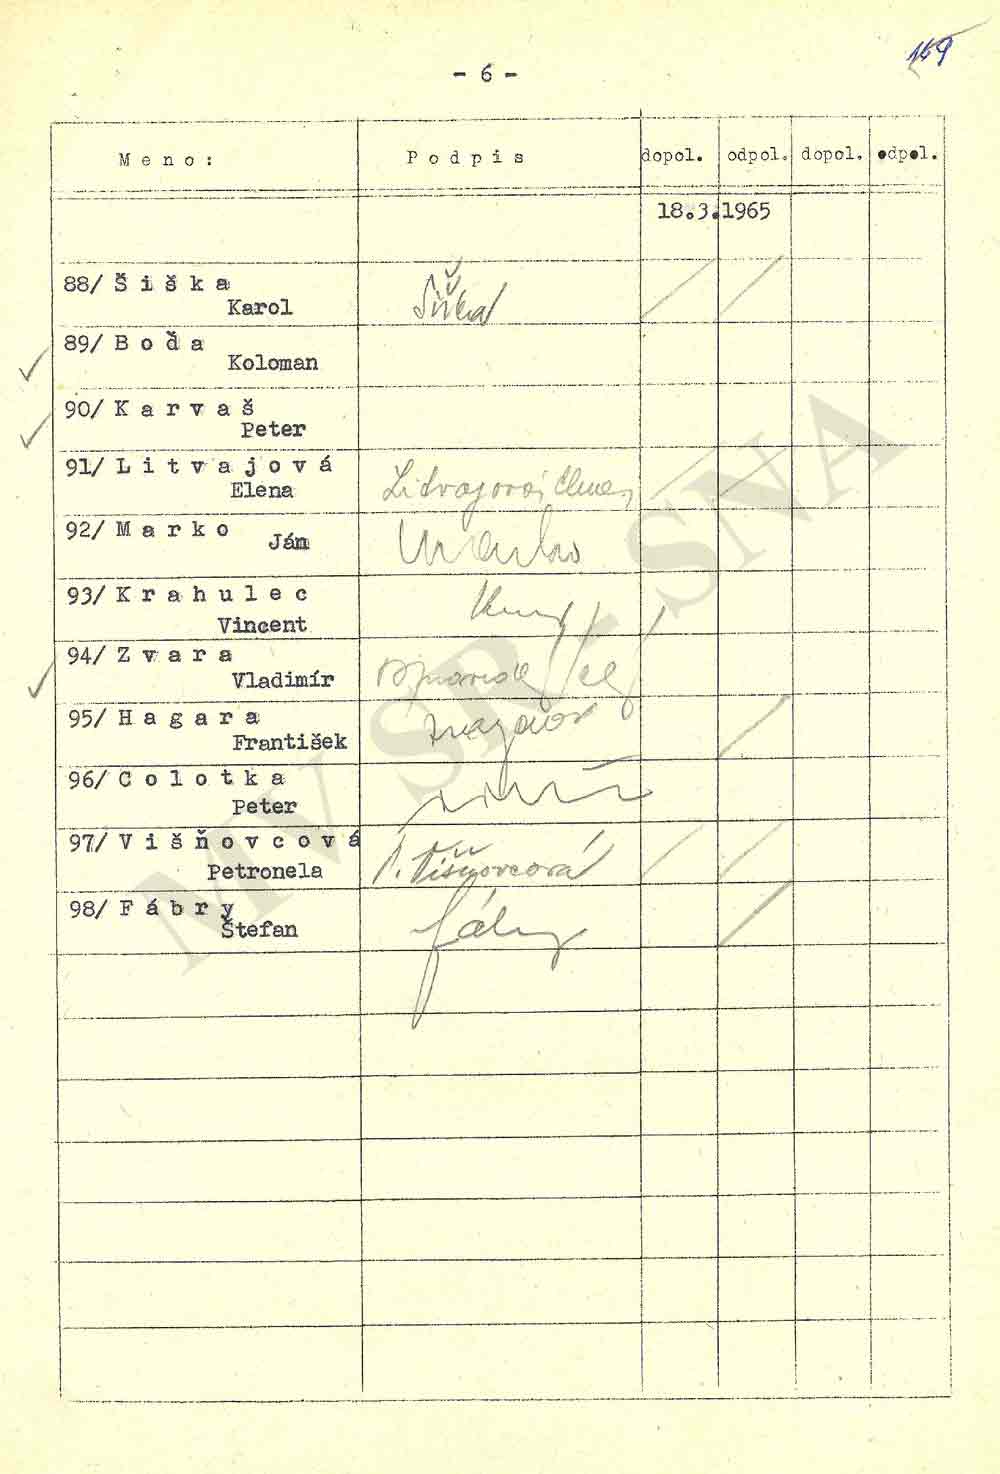 149
- 6 -
Meno: Podpis dopol. odpol. dopol. odpol.
18.3.1965
88/ Šiška
Karol
Šiška
89/ Boďa
Koloman
90/ Karvaš
Peter
91/ Litvajová
Elena
Litvajová Elena
92/ Marko
Ján
Marko
93/ Krahulec
Vincent
94/ Zvara
Vladimír
95/ Hagara
František
Hagara
96/ Colotka
Peter
97/ Višňovcová
Petronela
P. Višňovcová
98/ Fábry
Štefan
Fábry
MV SR - SNA